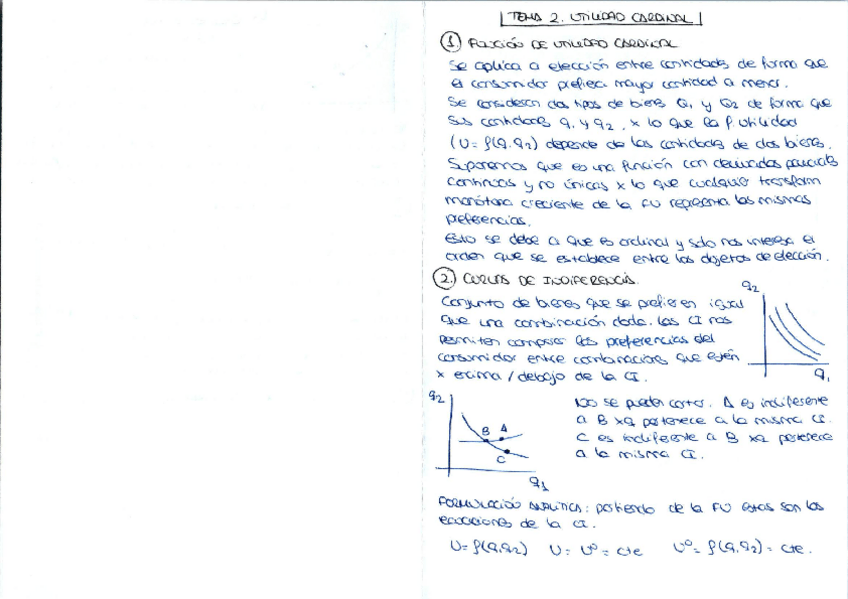 TEMA 2. UTILIDAD CARDINAL
1. FUNCIÓN DE UTILIDAD CARDINAL
Se aplica a elección entre cantidades de forma que
el consumidor prefiera mayor cantidad a menor.
Se consideran dos tipos de bienes Q1 y Q2 de forma que
sus cantidades q1 y q2, x lo que la f. utilidad
(U = f(q1 q2) depende de las cantidades de dos bienes.
Suponemos que es una función con derivadas parciales
continuas y no únicas x lo que cualquier transform
monótona creciente de la FU representa las mismas
preferencias.
Esto se debe a que es ordinal y solo nos interesa el
orden que se establece entre los objetos de elección.
2. CURVAS DE INDIFERENCIA
Conjunto de bienes que se prefieren igual
que una combinación dada. Las CI nos
permiten comparar las preferencias del
consumidor entre combinaciones que estén
x encima / debajo de la CI.
q2
q1
NO se pueden cortar. A es indiferente
a B xq pertenece a la misma CI.
C es indiferente a B xq pertenece
a la misma CI.
q2
B A
C
q1
FORMULACIÓN ANALÍTICA: partiendo de la FU estas son las
ecuaciones de la CI.
U = f(q1 q2) U = U⁰ = cte U⁰ = f(q1 q2) = cte.